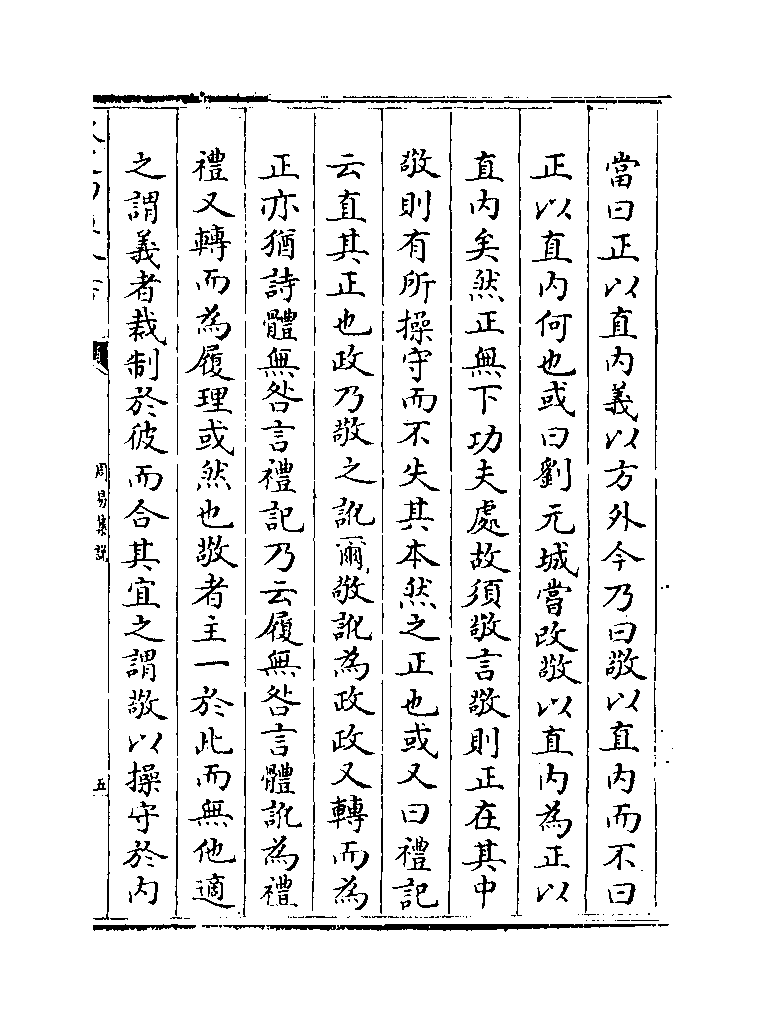 當曰正以直内義以方外今乃曰敬以直内而不曰
正以直内何也或曰劉元城嘗改敬以直内為正以
直内矣然正無下功夫處故須敬言敬則正在其中
敬則有所操守而不失其本然之正也或又曰禮記
云直其正也政乃敬之訛爾敬訛為政政又轉而為
正亦猶詩體無咎言禮記乃云履無咎言體訛為禮
禮又轉而為履理或然也敬者主一於此而無他適
之謂義者裁制於彼而合其宜之謂敬以操守於内
周易集說
五